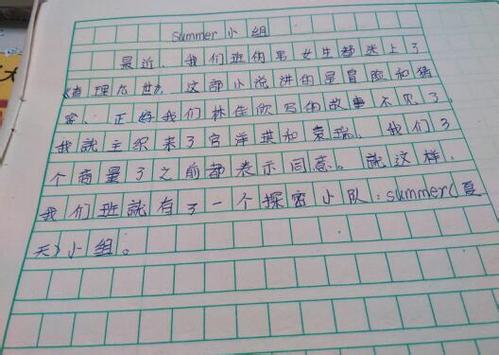 summer小组
最近，我们班的男女生都迷上了
《查理九世》，这部小说讲的是冒险和猜
密，正好我们林佳欣写的故事不见了，
我就主织来了宫洋琪和袁瑞，我们3
个商量了之前都表示同意。就这样，
我们班就有了一个探密小队：summer(夏
天)小组。